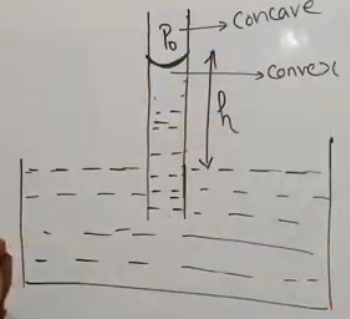 P₀ → concave
→ convex
h